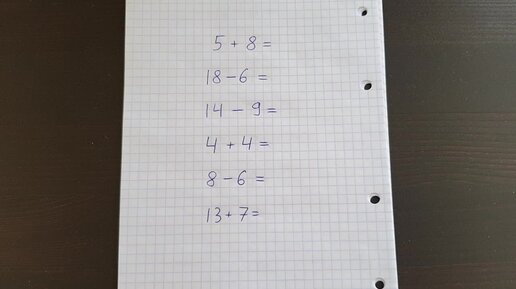 5 + 8 =
18 - 6 =
14 - 9 =
4 + 4 =
8 - 6 =
13 + 7 =